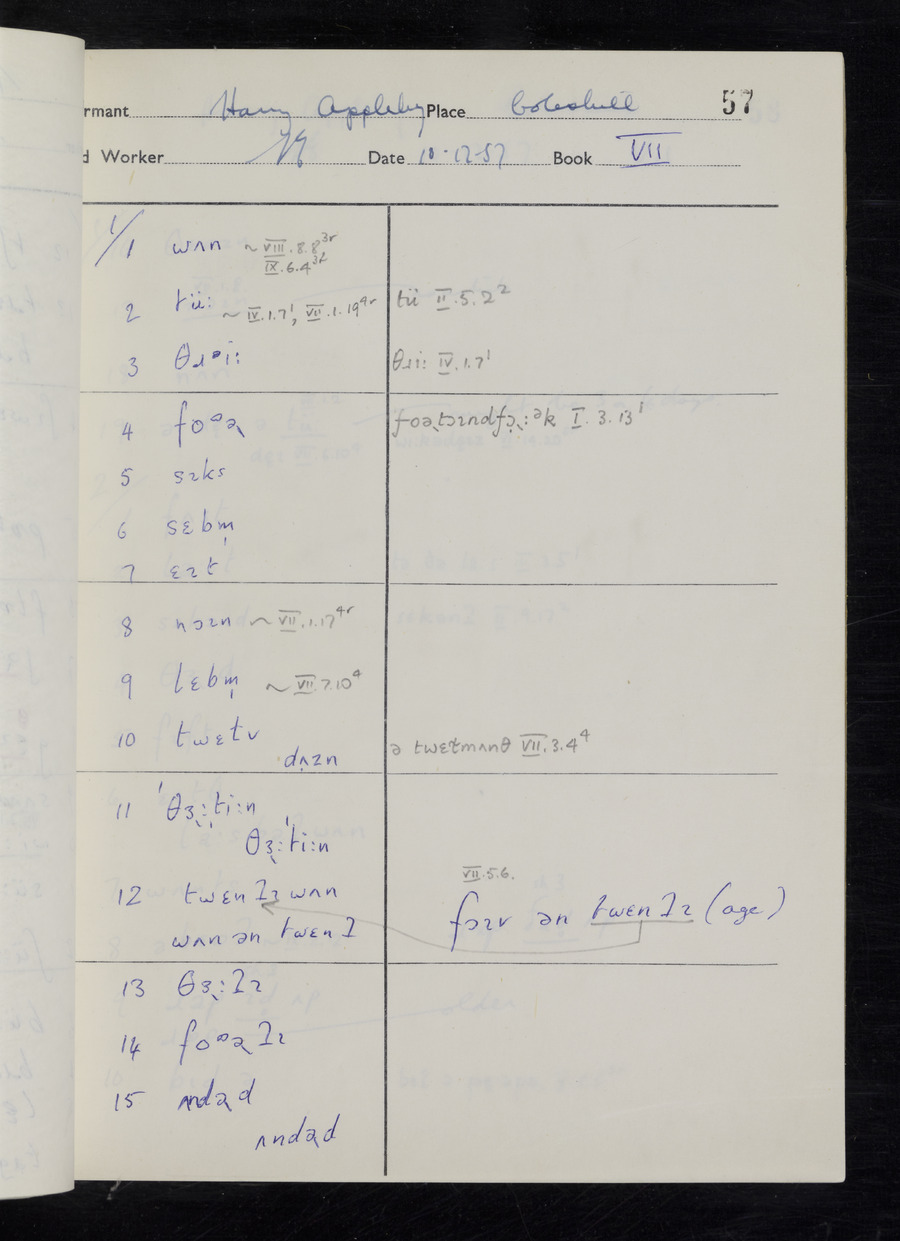 rmant Harry Appleby Place Coleshill 57
d Worker Date 10-12-57 Book VII
1/1 wʌn ~ VIII.8.8³ʳ
IX.6.4³ᵗ
2 tü: ~ IV.1.7¹, VII.1.19⁴ʳ tü II.5.2²
3 θɹᵊi: θɹi: IV.1.7¹
4 foᵊə̢ foə̢tɔɪndfɔ̢:ᵊk I.3.13¹
5 sɪks
6 sɛbm̩
7 ɛɪt
8 nɔɪn ~ VII.1.17⁴ʳ
9 lɛbm̩ ~ VII.7.10⁴
10 twɛtv
dʌzn ə twɛtmʌnθ VII.3.4⁴
11 ˈθɜ̢:ti:n
θɜ̢:ˈti:n
VII.5.6.
12 twɛnʔɪ wʌn fɔɪv ən twɛnʔɪ (age)
wʌn ən twɛnʔ
13 θɜ̢:ʔɪ
14 foᵊə̢ʔɪ
15 ʌndə̢d
ʌndə̢d